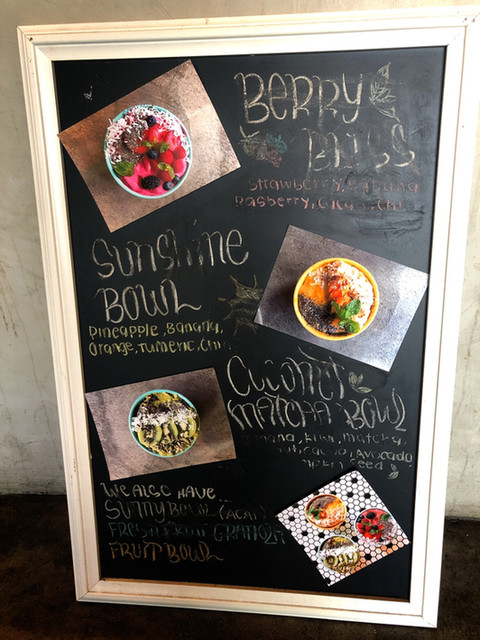 BERRY
BLISS
Strawberry, Banana
Rasberry, Cacao, Chia
Sunshine
BOWL
Pineapple, Banana,
Orange, Turmeric, Chia
MATCHA BOWL
Kiwi, Matcha,
Avocado
Seed
WE ALSO HAVE...
SUNNY BOWL (ACAI)
FRESH FRUIT GRANOLA
FRUIT BOWL